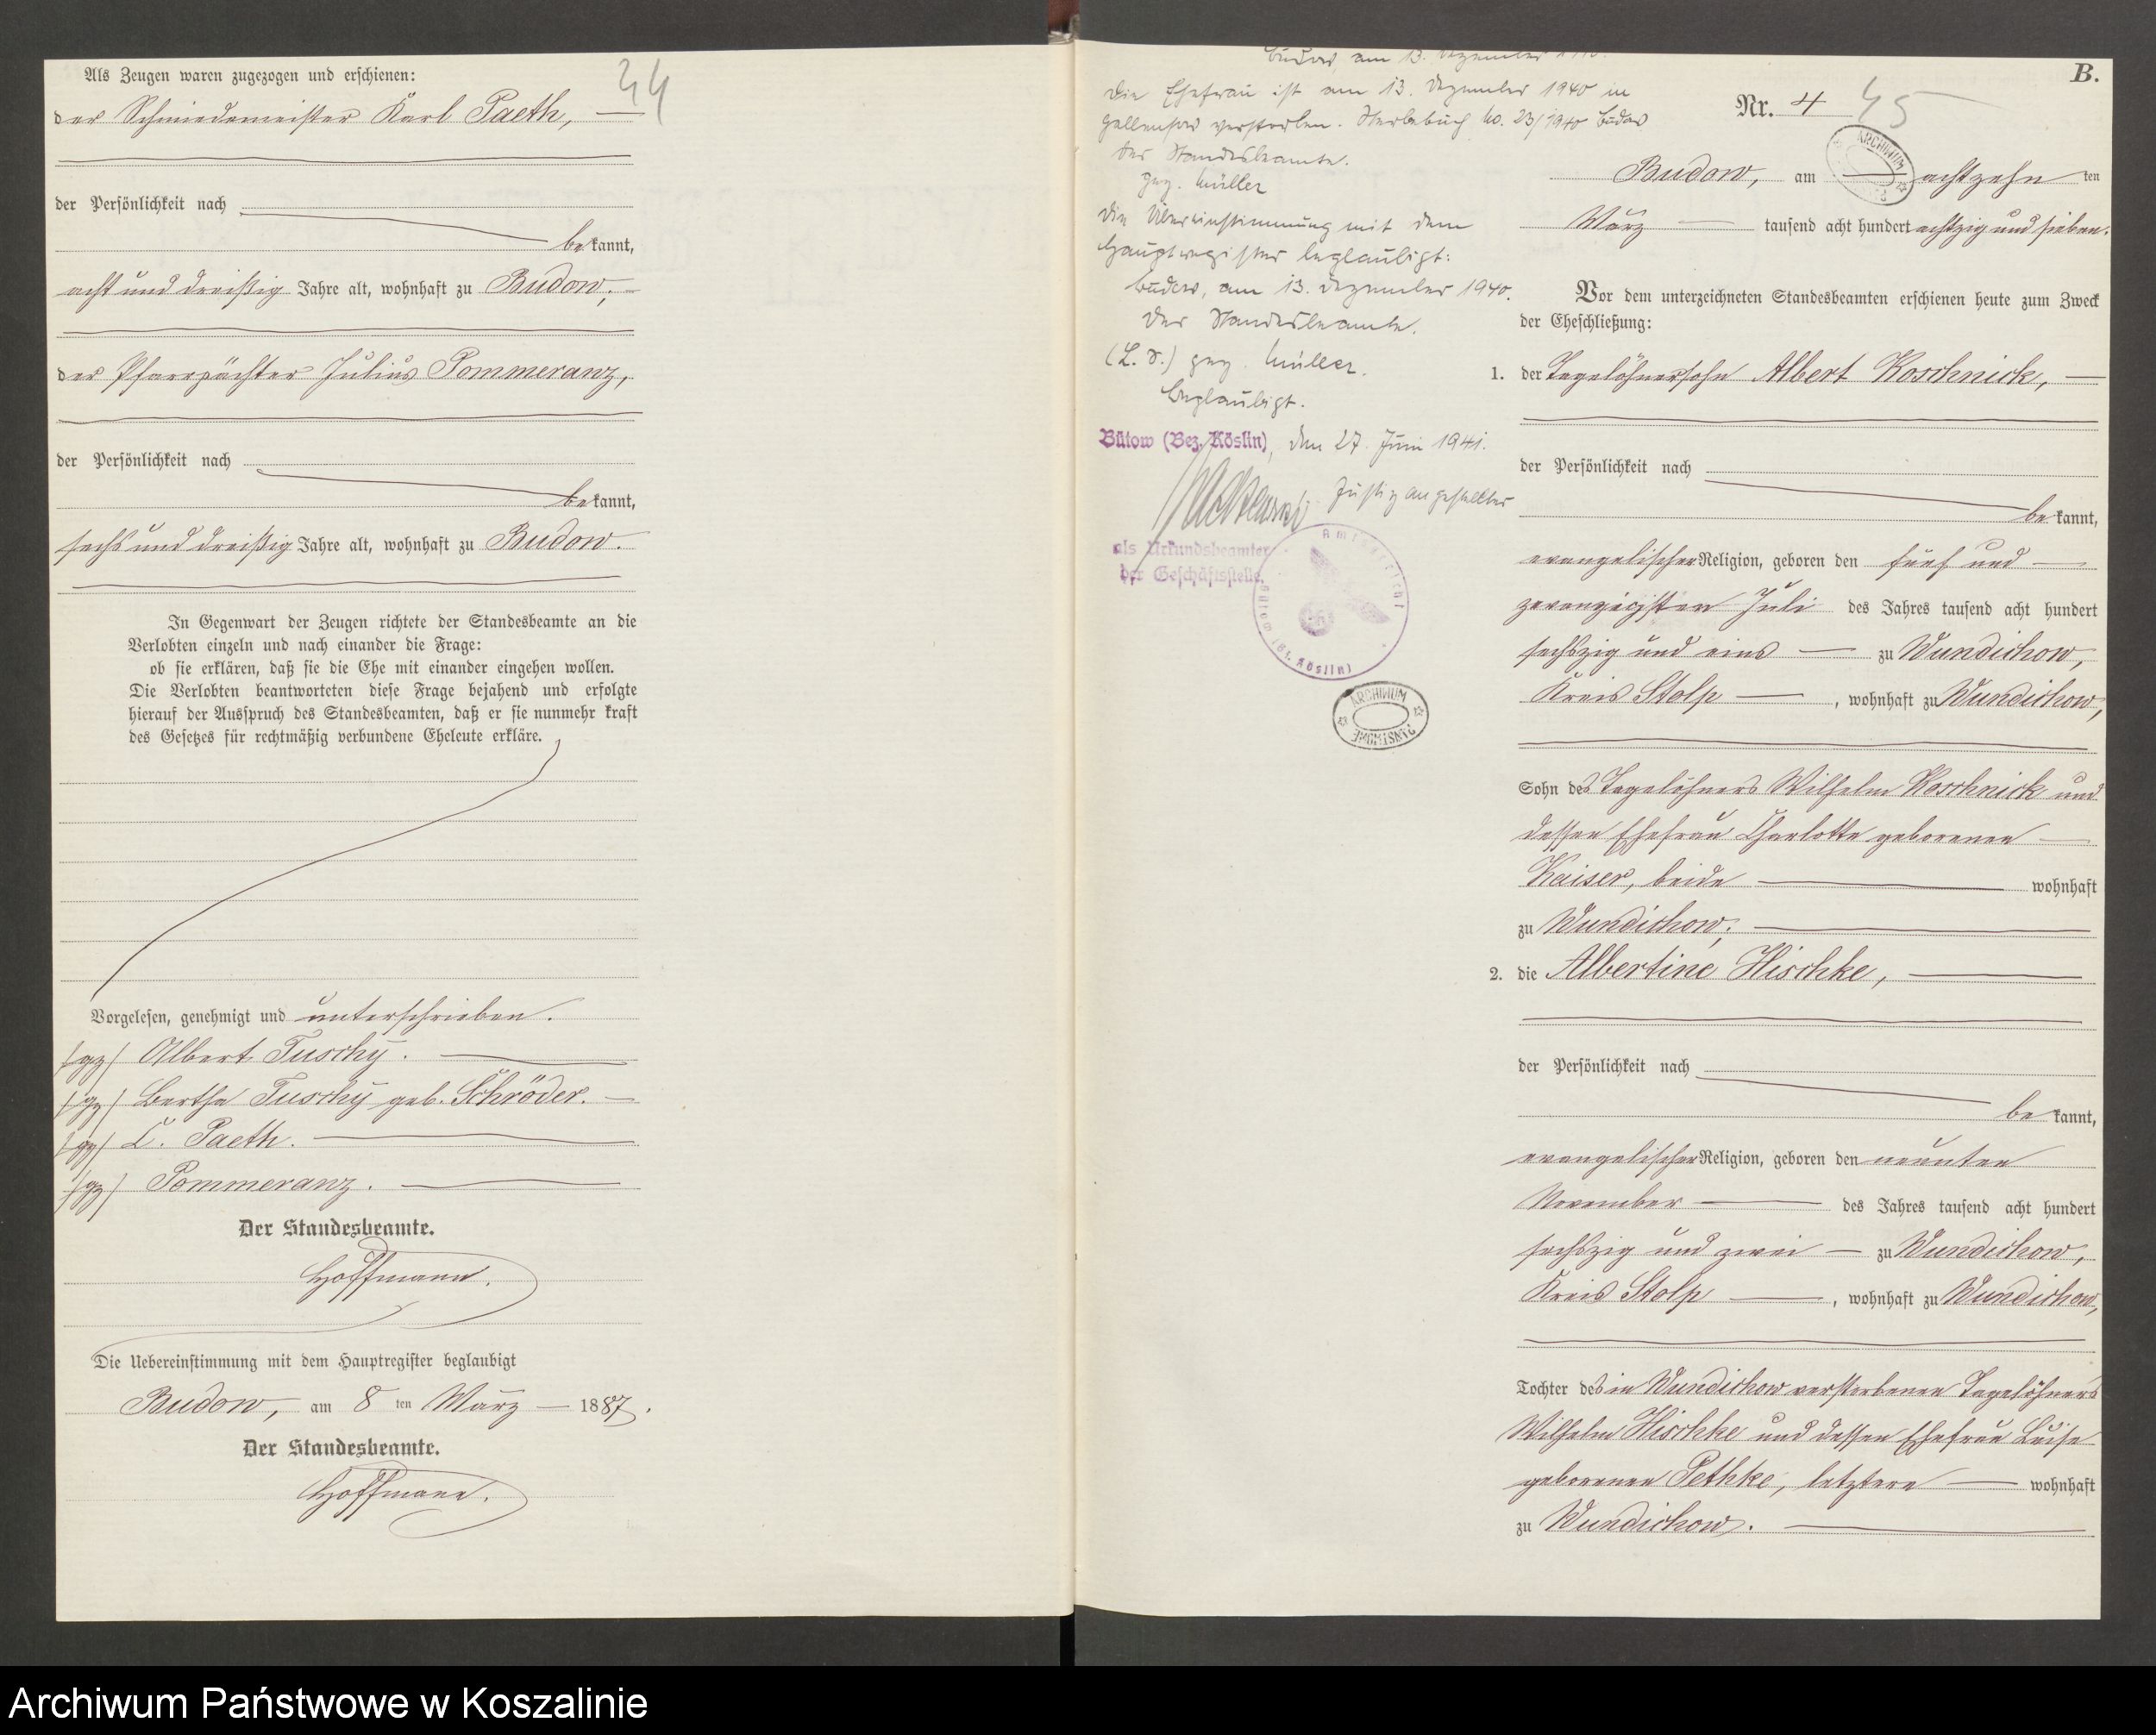 44
Als Zeugen waren zugezogen und erschienen:
der Schmiedemeister Karl Paeth,
der Persönlichkeit nach
bekannt,
acht und dreißig Jahre alt, wohnhaft zu Budow;
der Pfarrpächter Julius Pommeranz,
der Persönlichkeit nach
bekannt,
sechs und dreißig Jahre alt, wohnhaft zu Budow.
In Gegenwart der Zeugen richtete der Standesbeamte an die
Verlobten einzeln und nach einander die Frage:
ob sie erklären, daß sie die Ehe mit einander eingehen wollen.
Die Verlobten beantworteten diese Frage bejahend und erfolgte
hierauf der Ausspruch des Standesbeamten, daß er sie nunmehr kraft
des Gesetzes für rechtmäßig verbundene Eheleute erkläre.
Vorgelesen, genehmigt und unterschrieben.
/gz/ Albert Tuschy.
/gz/ Bertha Tuschy geb. Schröder.
/gz/ C. Paeth.
/gz/ Pommeranz.
Der Standesbeamte.
Hoffmann.
Die Uebereinstimmung mit dem Hauptregister beglaubigt
Budow, am 8 ten März 1887.
Der Standesbeamte.
Hoffmann.
Budow, am 13. Dezember
Die Ehefrau ist am 13. Dezember 1940 in
verstorben. Sterbebuch No. 23/1940 Budow
Der Standesbeamte.
gez. Müller
Die Übereinstimmung mit dem
Hauptregister beglaubigt:
Budow, am 13. Dezember 1940.
Der Standesbeamte.
(L. S.) gez. Müller.
Beglaubigt.
Bütow (Bez. Köslin), den 27. Juni 1941.
Justizangestellter
als Urkundsbeamter
der Geschäftsstelle.
Amtsgericht
Köslin)
ARCHIWUM
B.
Nr. 4 45
ARCHIWUM
Budow, am achtzehn ten
März tausend acht hundert achtzig und sieben.
Vor dem unterzeichneten Standesbeamten erschienen heute zum Zweck
der Eheschließung:
1. der Tagelöhnersohn Albert Koschnick,
der Persönlichkeit nach
bekannt,
evangelischer Religion, geboren den fünf und
zwanzigsten Juli des Jahres tausend acht hundert
sechszig und eins zu Wundichow,
Kreis Stolp, wohnhaft zu Wundichow,
Sohn des Tagelöhners Wilhelm Koschnick und
dessen Ehefrau Charlotte geborenen
Kaiser, beide wohnhaft
zu Wundichow;
2. die Albertine Hischke,
der Persönlichkeit nach
bekannt,
evangelischer Religion, geboren den neunten
November des Jahres tausend acht hundert
sechszig und zwei zu Wundichow,
Kreis Stolp, wohnhaft zu Wundichow,
Tochter des in Wundichow verstorbenen Tagelöhners
Wilhelm Hischke und dessen Ehefrau Luise
geborenen Pethke, letztere wohnhaft
zu Wundichow.
Archiwum Państwowe w Koszalinie